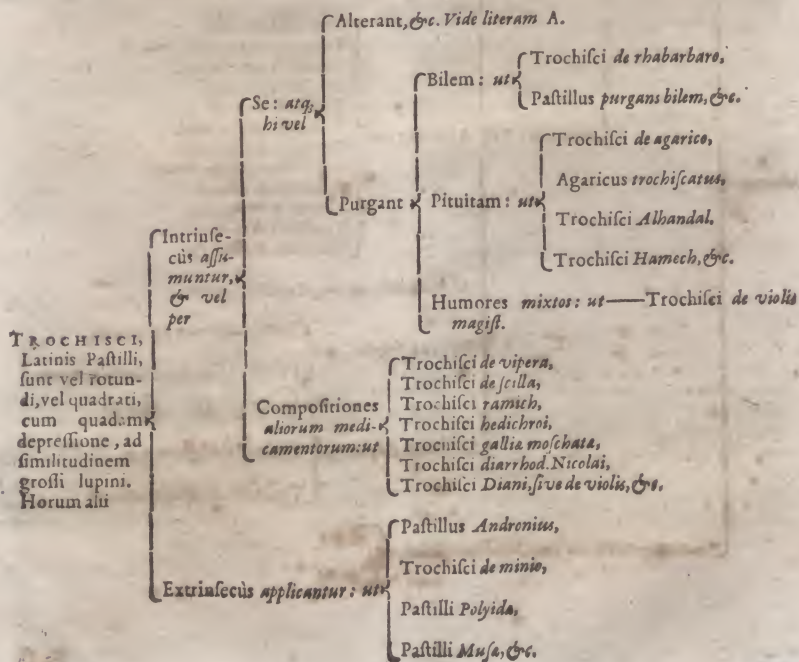 TROCHISCI,
Latinis Paſtilli,
ſunt vel rotun-
di, vel quadrati,
cum quadam
depreſſione, ad
ſimilitudinem
groſſi lupini.
Horum alii
Intrinſe-
cùs aſſu-
muntur,
& vel
per
Se: atq;
hi vel
Alterant, &c. Vide literam A.
Purgant
Bilem: ut
Trochiſci de rhabarbaro,
Paſtillus purgans bilem, &c.
Pituitam: ut
Trochiſci de agarico,
Agaricus trochiſcatus,
Trochiſci Alhandal,
Trochiſci Hamech, &c.
Humores mixtos: ut Trochiſci de violis
magiſt.
Compoſitiones
aliorum medi-
camentorum: ut
Trochiſci de vipera,
Trochiſci de ſcilla,
Trochiſci ramich,
Trochiſci hedichroi,
Trochiſci gallia moſchata,
Trochiſci diarrhod. Nicolai,
Trochiſci Diani, ſive de violis, &c.
Extrinſecùs applicantur: ut
Paſtillus Andronius,
Trochiſci de minio,
Paſtilli Polyida,
Paſtilli Muſa, &c.